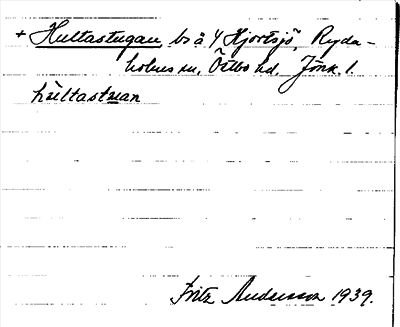 + Hultastugan, bs å 4 Hjortsjö, Ryda-
holms sn, Östbo hd, Jönk. l.
hultastuan
Fritz Andersson 1939.